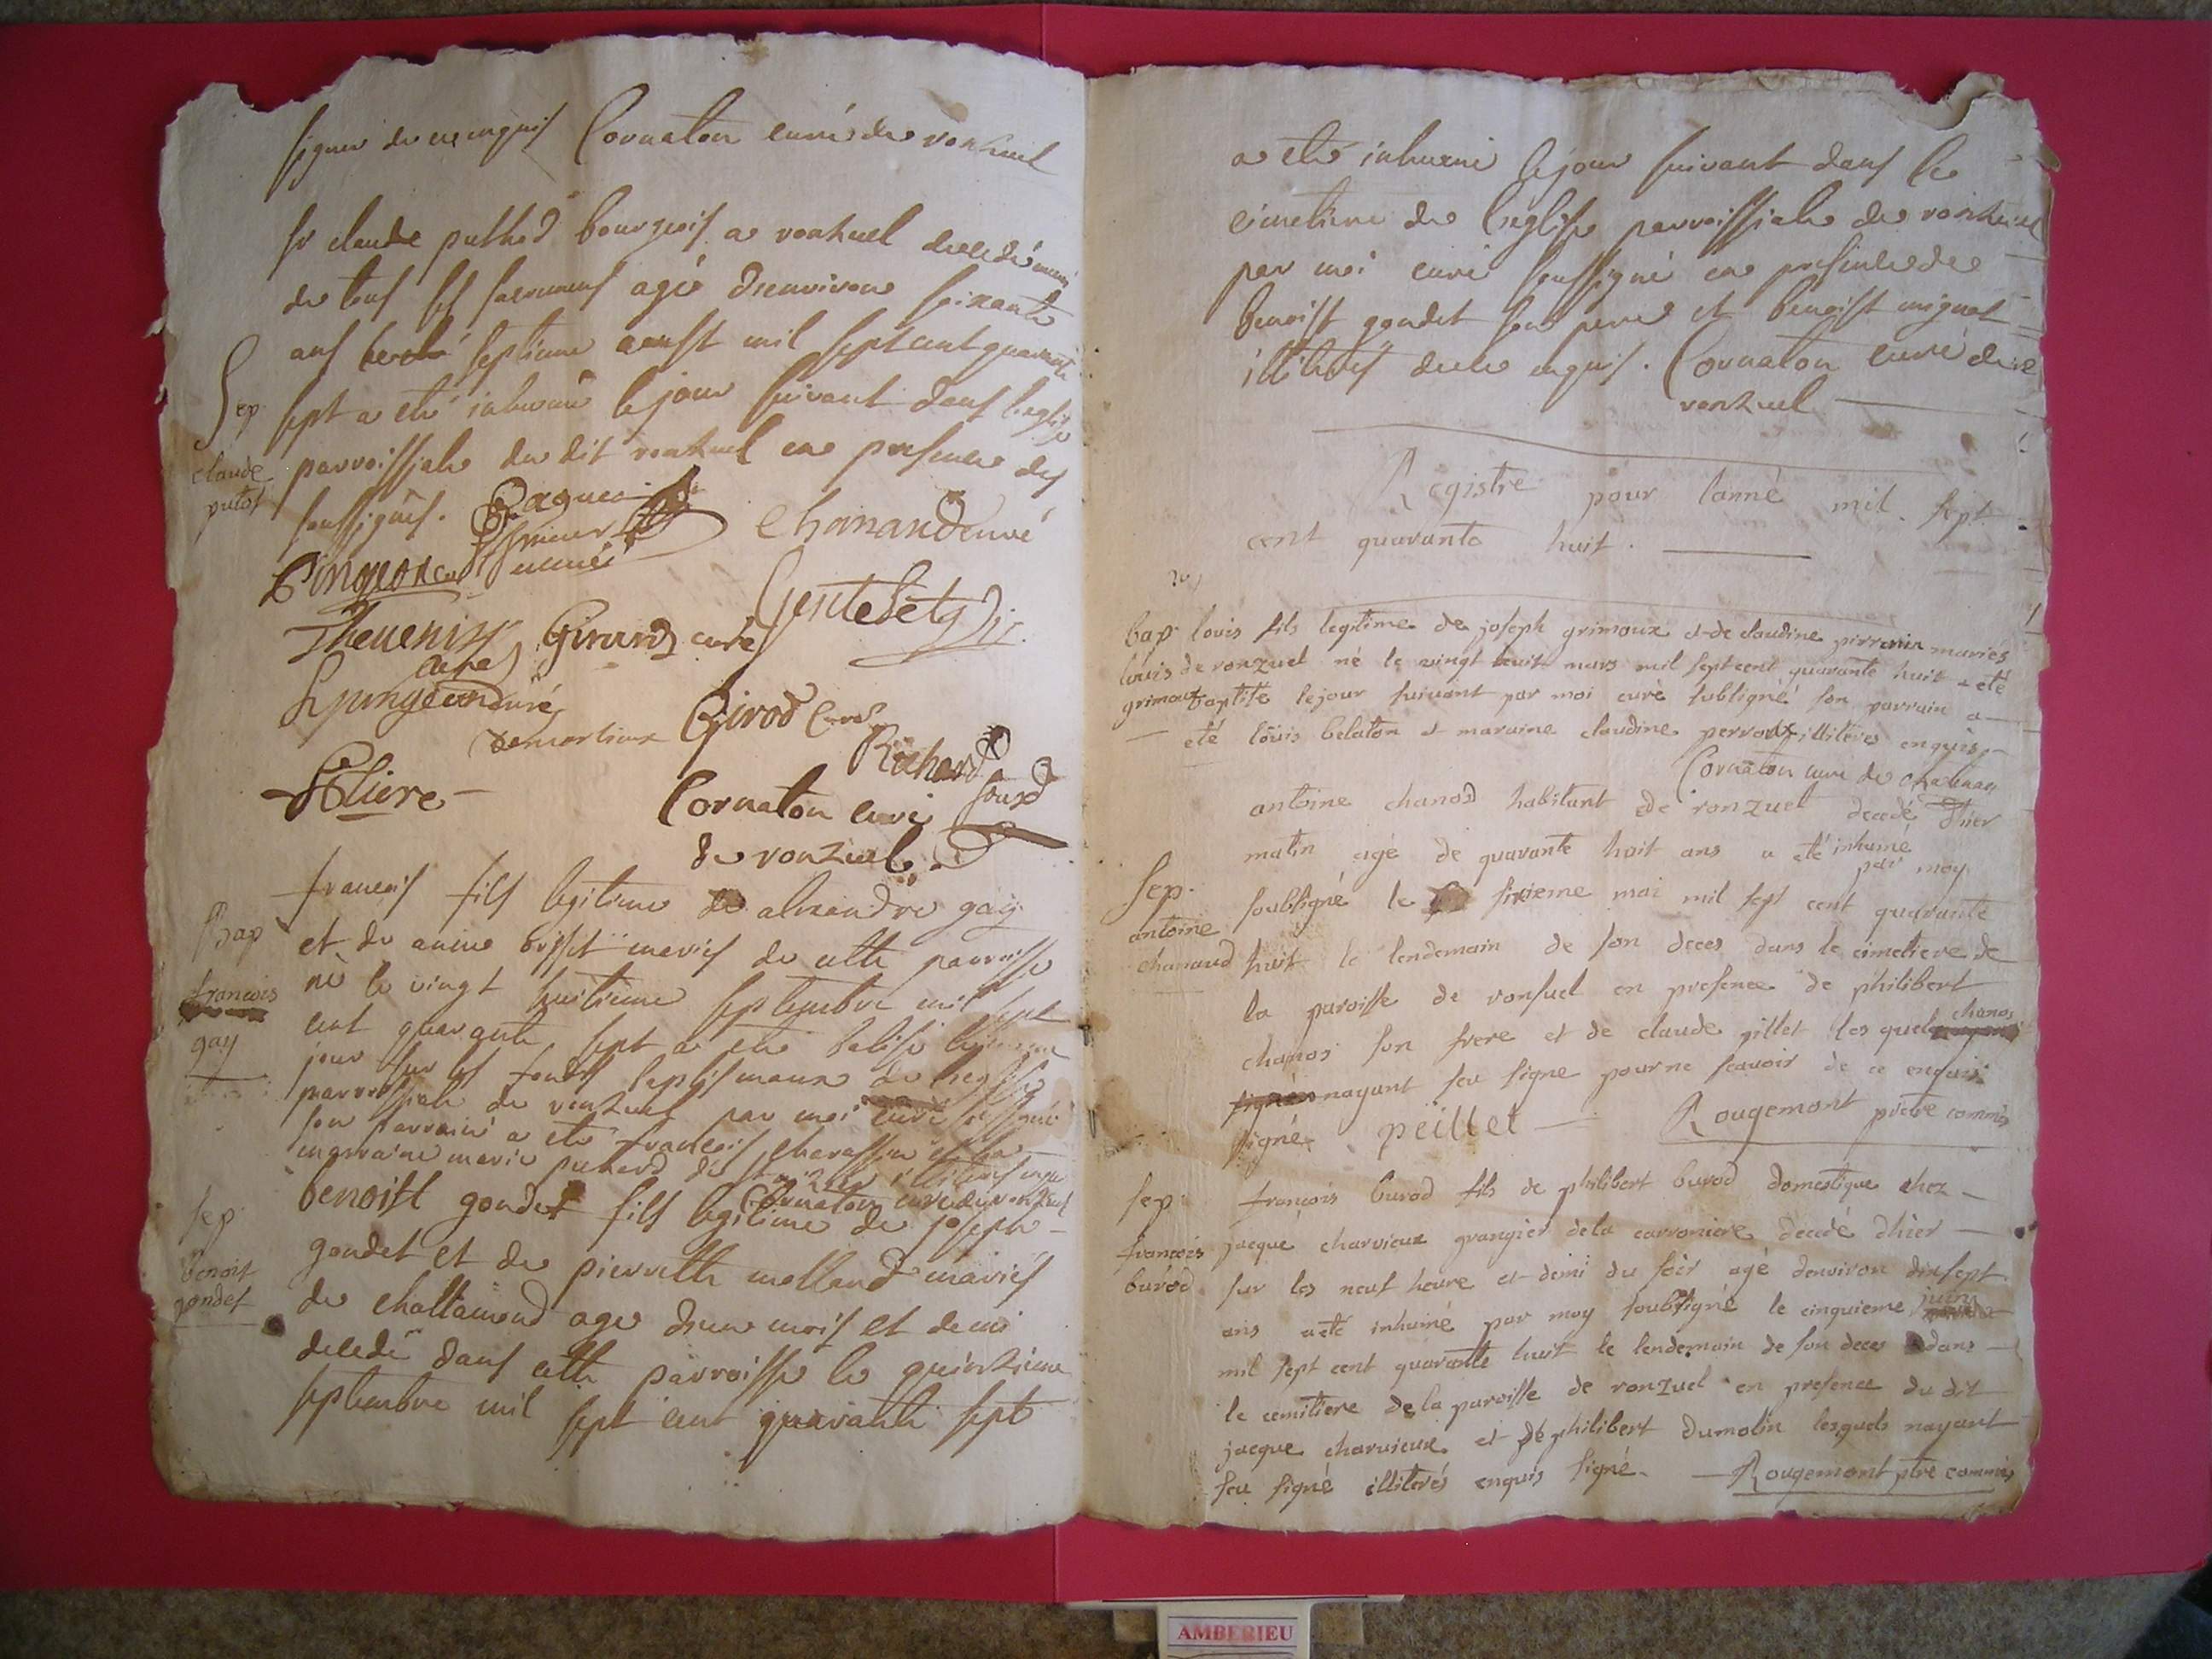 signer de ce enquis Cornaton curé de ronzuel
sr claude puthod bourgeois a ronzuel decedé muni
de tous ses sacremens agé denviron soixante
ans le septieme aoust mil sept cent quarante
Sep
sept a eté inhumé le jour suivant dans leglise
claude
putot
parroissiale du dit ronzuel en presence des
soussignés.
Chanand curé
curé
Gentelet
Thevenin
curé
Girard curé
curé
Girod curé
Richard
Cornaton curé
de ronzuel
francois fils legitime de alexandre gay
Bap
et de anne maries de cette parroisse
francois
gay
né le vingt huitieme septembre mil sept
cent quarante sept a eté batisé
jour sur les fonds baptismaux de leglise
parroissiale de ronzuel par moi curé soussigné
son parrain a eté francois et la
marraine marie puthod de illiteres
Cornaton curé de ronzuel
Sep
benoist gondet fils legitime de joseph
benoit
gondet
gondet et de pierrette molland mariés
de chattamond agé dun mois et demi
decedé dans cette parroisse le quinzieme
septembre mil sept cent quarante sept
a eté inhumé le jour suivant dans le
cimetiere de leglise parroissiale de ronzuel
par moi curé soussigné en presence de
benoist gondet son pere et benoist mignot
illiterés de ce enquis. Cornaton curé de
ronzuel
Registre pour lanné mil sept
cent quarante huit.
bap
louis
grimoux
louis fils legitime de joseph grimoux et de claudine mariés
de ronzuel né le vingt huit mars mil sept cent quarante huit a eté
baptisé le jour suivant par moi curé subsigné son parrain a
eté louis belaton et maraine claudine perroux illiteres enquis
Cornaton curé de
antoine chanod habitant de ronzuel decedé dhier
matin agé de quarante huit ans a eté inhumé
par moy
Sep.
antoine
chanaud
soubsigné le sixieme mai mil sept cent quarante
huit le lendemain de son deces dans le cimetiere de
la paroisse de ronsuel en presence de philibert
chanos son frere et de claude pillet les quels chanos
nayant scu signe pour ne scavoir de ce enquis
signé. peillet Rougemont pretre commis
Sep.
francois
burod
francois burod fils de philibert burod domestique chez
jacque charvieux grangier de la carroniere decedé dhier
sur les neuf heure et demi du soir agé denviron dixsept
ans a eté inhumé par moy soubsigné le cinquieme juin
mil sept cent quarante huit le lendemain de son deces dans
le cemitiere de la paroisse de ronzuel en presence du dit
jacque charvieux et de philibert dumolin lesquels nayant
sceu signé illiterés enquis signé. Rougemont ptre commis
AMBERIEU